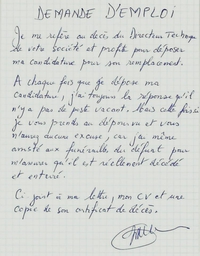 DEMANDE D'EMPLOI
Je me réfère au décès du Directeur Technique
de votre Société et profite pour déposer
ma candidature pour son remplacement.
A chaque fois que je dépose ma
candidature, j'ai toujours la réponse qu'il
n'y a pas de poste vacant. Mais cette fois-ci
Je vous prends au dépourvu et vous
n'aurez aucune excuse, car j'ai même
assisté aux funérailles du défunt pour
m'assurer qu'il est réellement décédé
et enterré.
Ci joint à ma lettre, mon CV et une
copie de son certificat de décès.